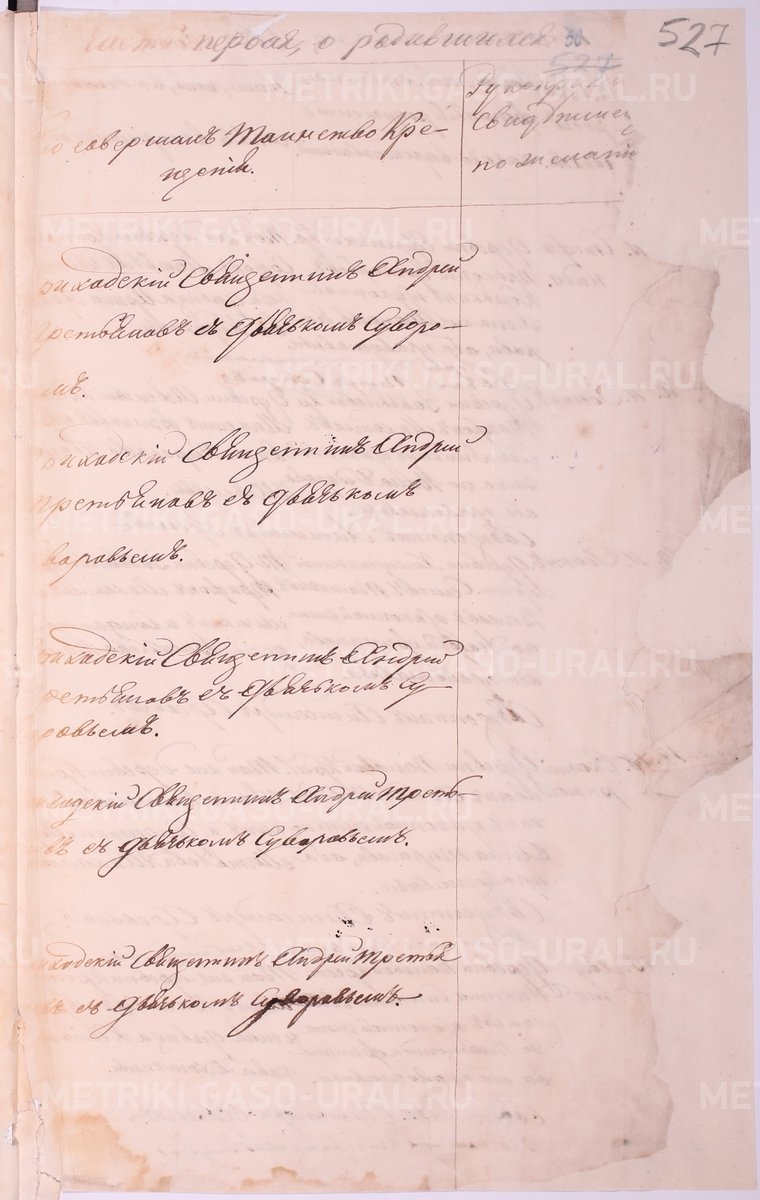 527
Часть первая, о родившихся.
527
Рукопри
Свидѣтел
по желані
то совершалъ Таинство Кре-
щенія.
риходскій Священникъ Андрей
ретьяковъ съ дьячкомъ Суворо-
мъ.
риходскій Священникъ Андрей
ретьяковъ съ дьячкомъ
воровымъ.
риходскій Священникъ Андрей
ретьяковъ съ дьячкомъ Су-
воровымъ.
иходскій Священникъ Андрей Треть-
въ съ дьячкомъ Суворовымъ.
иходскій Священникъ Андрей Третья
въ съ дьячкомъ Суворовымъ.
METRIKI.GASO-URAL.RU